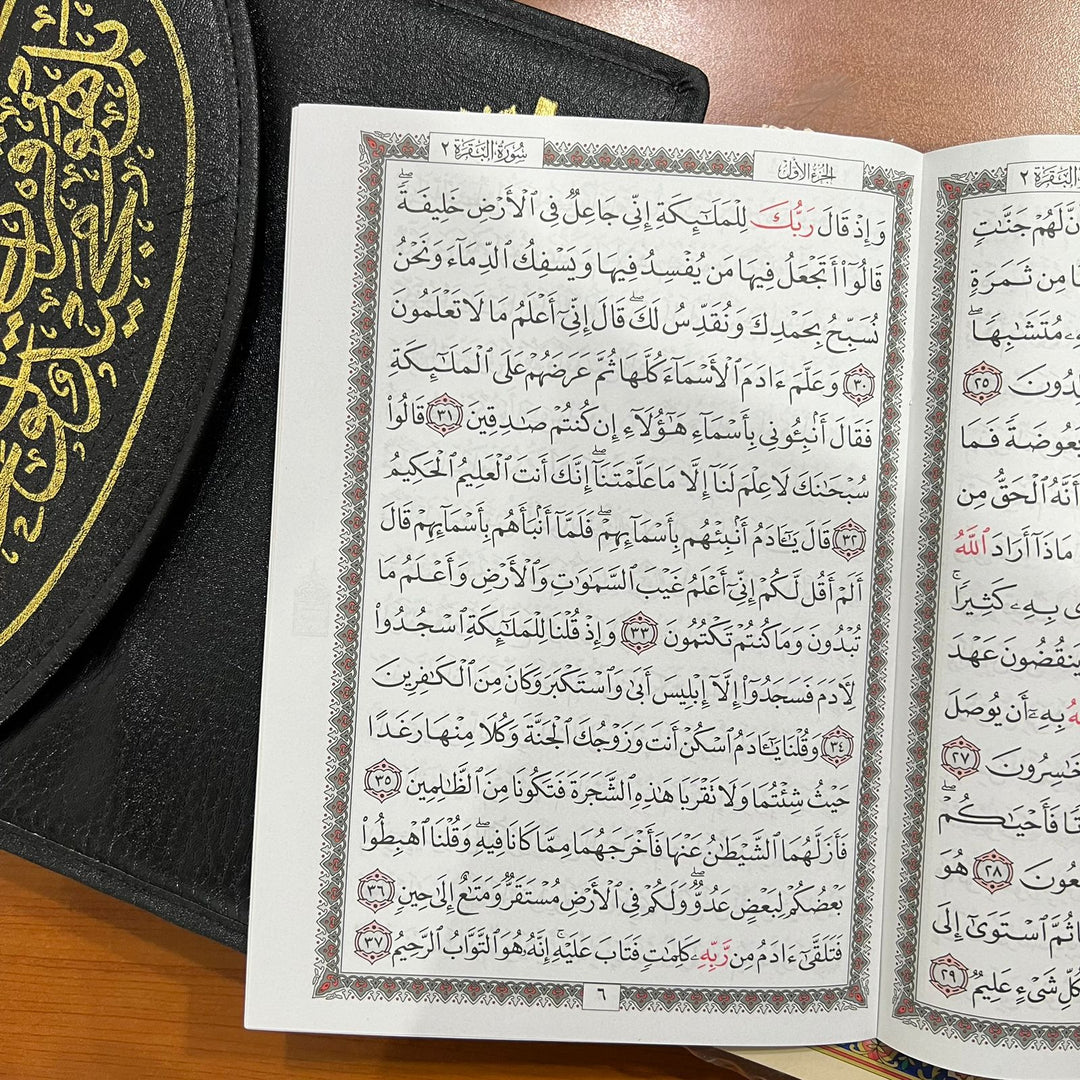 سُورَةُ البَقَرَةِ ٢
الجُزءُ الأوّلُ
وَإِذْ قَالَ رَبُّكَ لِلْمَلَٰٓئِكَةِ إِنِّي جَاعِلٌ فِي ٱلْأَرْضِ خَلِيفَةًۖ
قَالُوٓا۟ أَتَجْعَلُ فِيهَا مَن يُفْسِدُ فِيهَا وَيَسْفِكُ ٱلدِّمَآءَ وَنَحْنُ
نُسَبِّحُ بِحَمْدِكَ وَنُقَدِّسُ لَكَۖ قَالَ إِنِّيٓ أَعْلَمُ مَا لَا تَعْلَمُونَ
٣٠ وَعَلَّمَ ءَادَمَ ٱلْأَسْمَآءَ كُلَّهَا ثُمَّ عَرَضَهُمْ عَلَى ٱلْمَلَٰٓئِكَةِ
فَقَالَ أَنۢبِـُٔونِي بِأَسْمَآءِ هَٰٓؤُلَآءِ إِن كُنتُمْ صَٰدِقِينَ ٣١ قَالُوا۟
سُبْحَٰنَكَ لَا عِلْمَ لَنَآ إِلَّا مَا عَلَّمْتَنَآۖ إِنَّكَ أَنتَ ٱلْعَلِيمُ ٱلْحَكِيمُ
٣٢ قَالَ يَٰٓـَٔادَمُ أَنۢبِئْهُم بِأَسْمَآئِهِمْۖ فَلَمَّآ أَنۢبَأَهُم بِأَسْمَآئِهِمْ قَالَ
أَلَمْ أَقُل لَّكُمْ إِنِّيٓ أَعْلَمُ غَيْبَ ٱلسَّمَٰوَٰتِ وَٱلْأَرْضِ وَأَعْلَمُ مَا
تُبْدُونَ وَمَا كُنتُمْ تَكْتُمُونَ ٣٣ وَإِذْ قُلْنَا لِلْمَلَٰٓئِكَةِ ٱسْجُدُوا۟
لِـَٔادَمَ فَسَجَدُوٓا۟ إِلَّآ إِبْلِيسَ أَبَىٰ وَٱسْتَكْبَرَ وَكَانَ مِنَ ٱلْكَٰفِرِينَ
٣٤ وَقُلْنَا يَٰٓـَٔادَمُ ٱسْكُنْ أَنتَ وَزَوْجُكَ ٱلْجَنَّةَ وَكُلَا مِنْهَا رَغَدًا
حَيْثُ شِئْتُمَا وَلَا تَقْرَبَا هَٰذِهِ ٱلشَّجَرَةَ فَتَكُونَا مِنَ ٱلظَّٰلِمِينَ ٣٥
فَأَزَلَّهُمَا ٱلشَّيْطَٰنُ عَنْهَا فَأَخْرَجَهُمَا مِمَّا كَانَا فِيهِۖ وَقُلْنَا ٱهْبِطُوا۟
بَعْضُكُمْ لِبَعْضٍ عَدُوٌّۖ وَلَكُمْ فِي ٱلْأَرْضِ مُسْتَقَرٌّ وَمَتَٰعٌ إِلَىٰ حِينٍ ٣٦
فَتَلَقَّىٰٓ ءَادَمُ مِن رَّبِّهِۦ كَلِمَٰتٍ فَتَابَ عَلَيْهِۚ إِنَّهُۥ هُوَ ٱلتَّوَّابُ ٱلرَّحِيمُ ٣٧
٦
البَقَرَةِ ٢
لَهُمْ جَنَّٰتٍ
مِن ثَمَرَةٍ
مُتَشَٰبِهًاۖ
٢٥
بَعُوضَةً فَمَا
أَنَّهُ ٱلْحَقُّ مِن
مَاذَآ أَرَادَ ٱللَّهُ
بِهِۦ كَثِيرًاۚ
يَنقُضُونَ عَهْدَ
بِهِۦٓ أَن يُوصَلَ
ٱلْخَٰسِرُونَ ٢٧
فَأَحْيَٰكُمْۖ
٢٨ هُوَ
ثُمَّ ٱسْتَوَىٰٓ إِلَى
كُلِّ شَيْءٍ عَلِيمٌ ٢٩